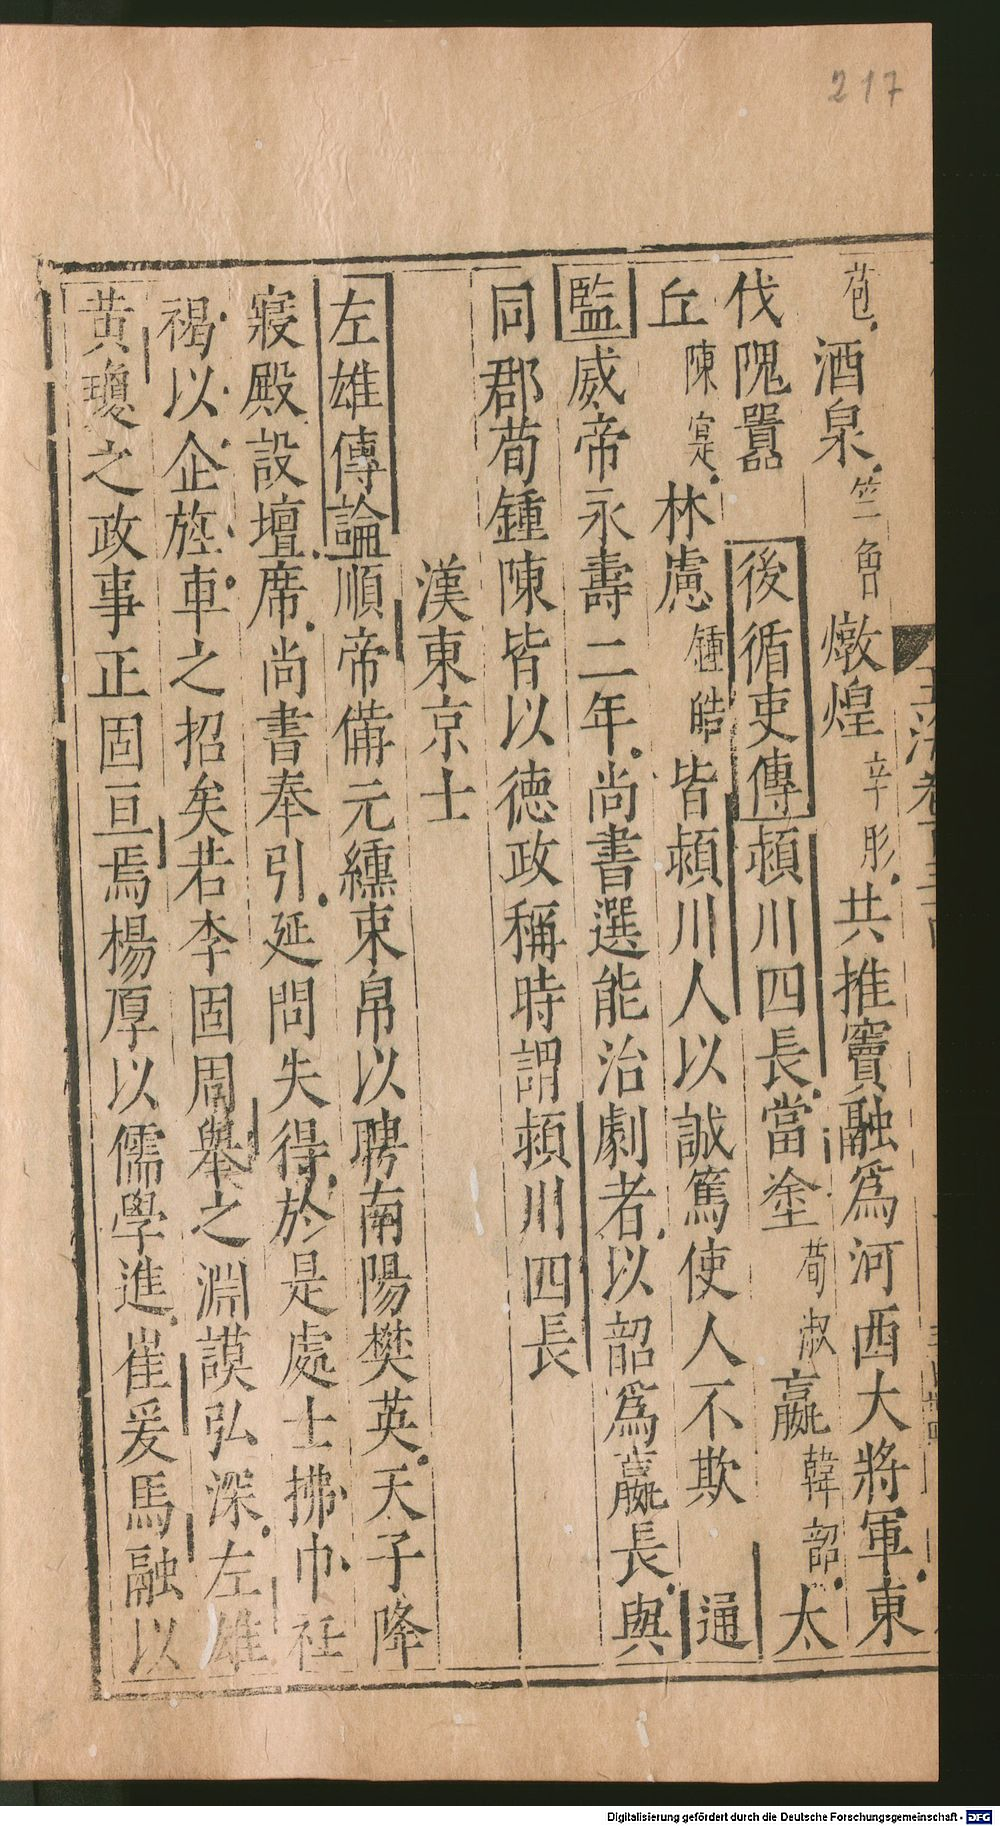 217
苞酒泉竺曾燉煌辛肜共推竇融爲河西大將軍東
伐隗囂 後循吏傳潁川四長當塗荀淑嬴韓韶太
丘陳寔林慮鍾皓皆潁川人以誠篤使人不欺 通
監威帝永壽二年尚書選能治劇者以韶爲嬴長與
同郡荀鍾陳皆以德政稱時謂潁川四長
漢東京士
左雄傳論順帝備元纁束帛以聘南陽樊英天子降
寢殿設壇席尚書奉引延問失得於是處士拂巾衽
褐以企旌車之招矣若李固周舉之淵謨弘深左雄
黄瓊之政事正固亘焉楊厚以儒學進崔爰馬融以
Digitalisierung gefördert durch die Deutsche Forschungsgemeinschaft - DFG